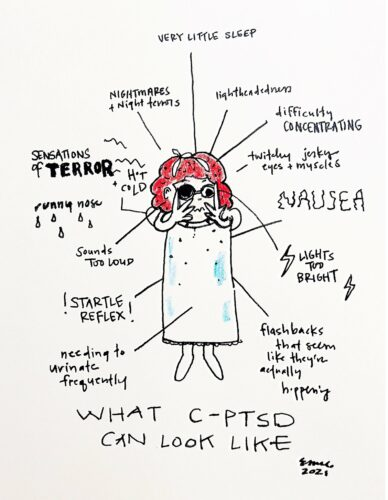 VERY LITTLE SLEEP
NIGHTMARES
+ Night terrors
lightheadedness
difficulty
CONCENTRATING
SENSATIONS
of TERROR
HOT
+ COLD
twitchy jerky
eyes + muscles
runny nose
NAUSEA
Sounds
TOO LOUD
LIGHTS
TOO
BRIGHT
! STARTLE
REFLEX !
flashbacks
that seem
like they're
actually
happening
needing to
urinate
frequently
WHAT C-PTSD
CAN LOOK LIKE
2021